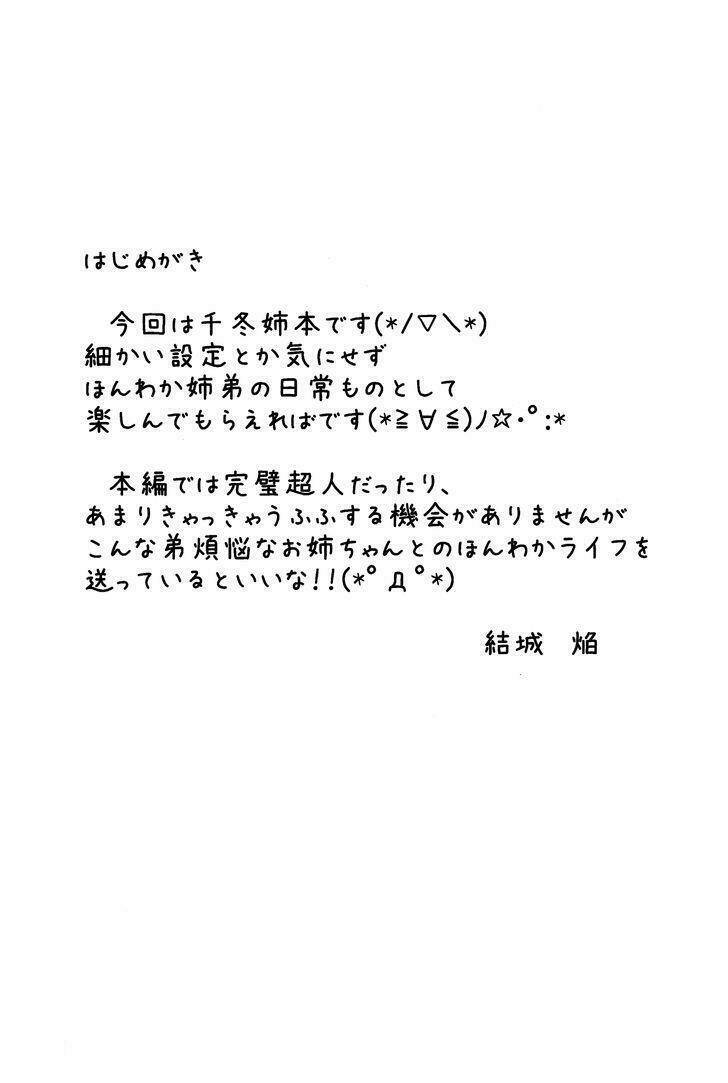 はじめがき
今回は千冬姉本です(*/▽＼*)
細かい設定とか気にせず
ほんわか姉弟の日常ものとして
楽しんでもらえればです(*≧∀≦)ﾉ☆･ﾟ:*
本編では完璧超人だったり、
あまりきゃっきゃうふふする機会がありませんが
こんな弟煩悩なお姉ちゃんとのほんわかライフを
送っているといいな!!(*ﾟДﾟ*)
結城　焔